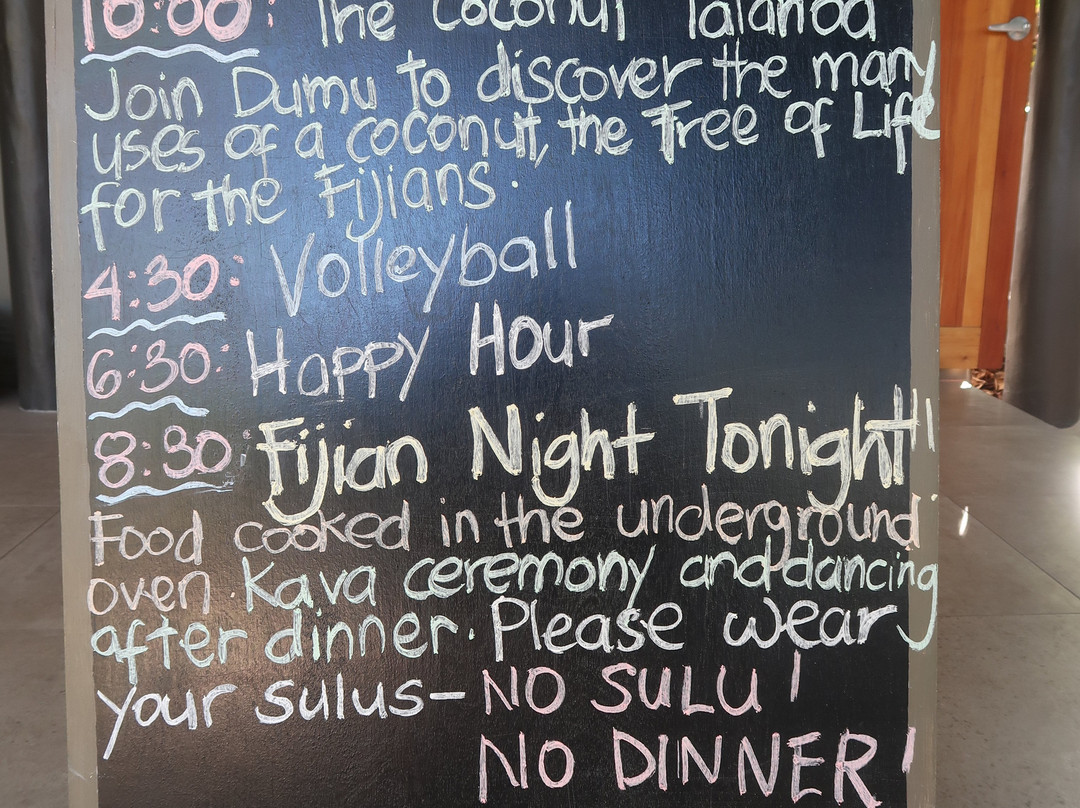 10:00: The Coconut Talanoa
Join Dumu to discover the many
uses of a coconut, the Tree of Life
for the Fijians.
4:30: Volleyball
6:30: Happy Hour
8:30: Fijian Night Tonight!!
Food cooked in the underground
oven. Kava ceremony and dancing
after dinner. Please wear
your sulus- NO SULU!
NO DINNER!